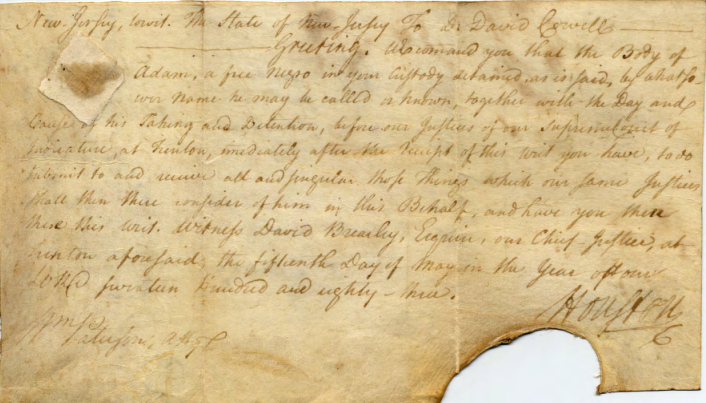 New-Jersey, towit. The State of New-Jersey To Dr. David Cowell
Greeting. We comand you that the Body of
Adam, a free Negro in your Custody detained, as is said, by whatso-
ever Name he may be called or known, together with the Day and
Cause of his Taking and Detention, before our Justices of our Supreme Court of
Judicature, at Trenton, imediately after the Receipt of this writ you have, to do
submit to and receive all and singular those Things which our same Justices
shall then there consider of him in this Behalf, and have you then
there this writ. Witness David Brearley, Esquire, our Chief-Justice, at
Trenton aforesaid, the fifteenth Day of May in the Year of our
Lord seventeen Hundred and eighty-three.
Houston
Wm. Paterson, Atty